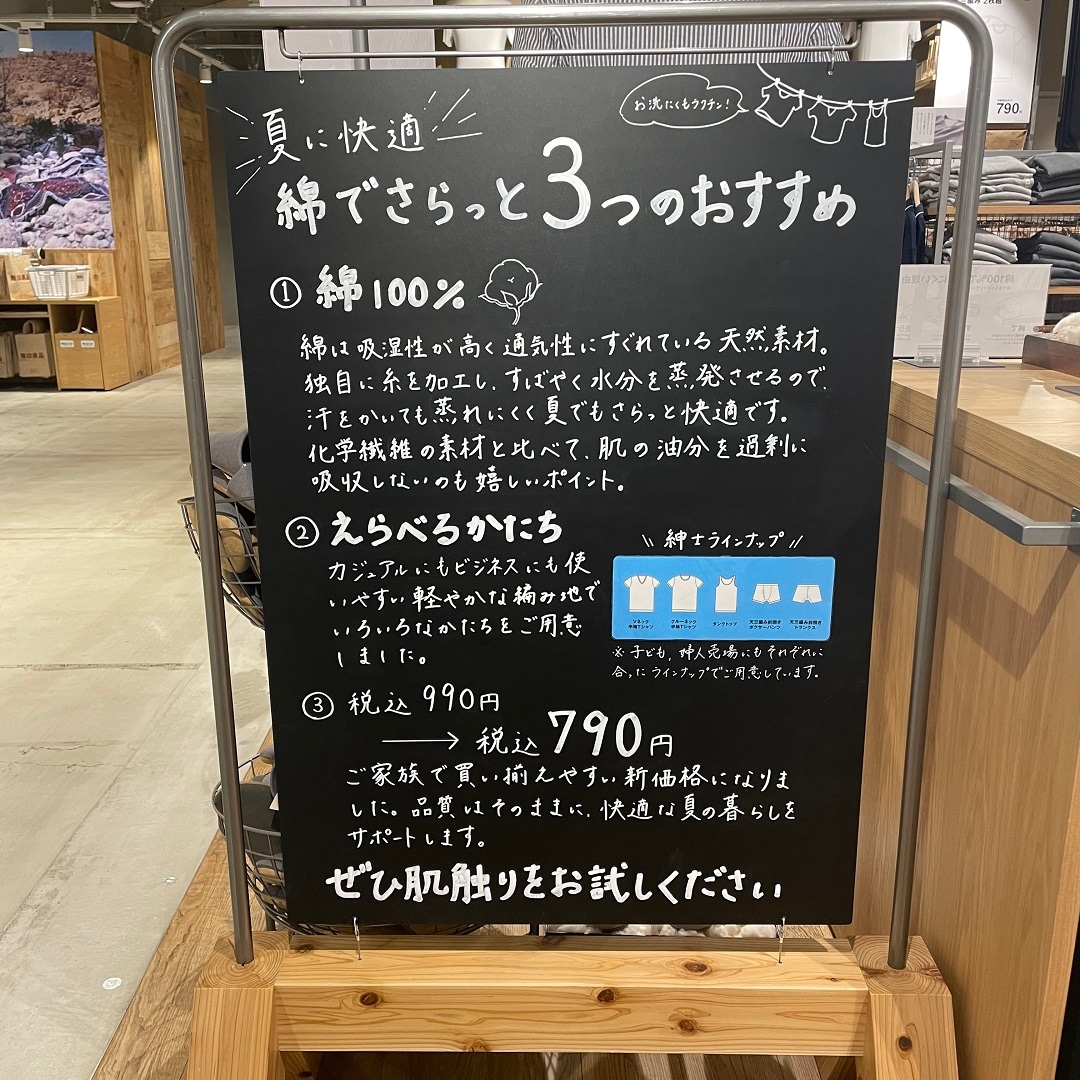 お洗たくもラクチン!
夏に快適
綿でさらっと3つのおすすめ
① 綿100%
綿は吸湿性が高く通気性にすぐれている天然素材。
独自に糸を加工し、すばやく水分を蒸発させるので、
汗をかいても蒸れにくく夏でもさらっと快適です。
化学繊維の素材と比べて、肌の油分を過剰に
吸収しないのも嬉しいポイント。
② えらべるかたち
カジュアルにもビジネスにも使
いやすい軽やかな編み地で
いろいろなかたちをご用意
しました。
\\ 紳士ラインナップ //
Vネック
半袖Tシャツ
クルーネック
半袖Tシャツ
タンクトップ
天竺編み前開き
ボクサーパンツ
天竺編み前開き
トランクス
※子ども、婦人売場にもそれぞれに
合ったラインナップでご用意しています。
③ 税込990円
→ 税込790円
ご家族で買い揃えやすい新価格になりま
した。品質はそのままに、快適な夏の暮らしを
サポートします。
ぜひ肌触りをお試しください
790
無印良品